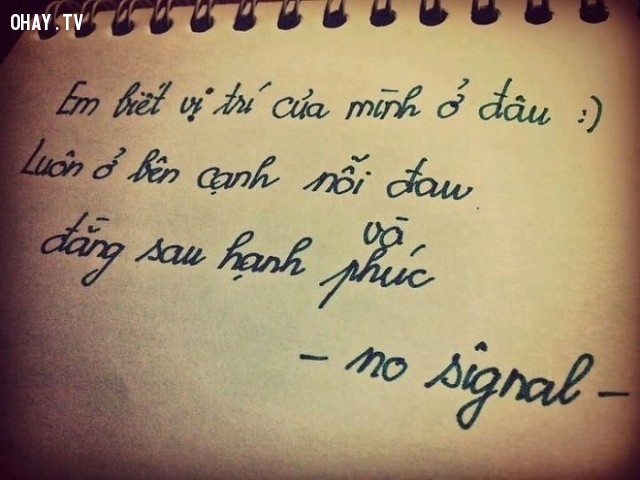 OHAY.TV
Em biết vị trí của mình ở đâu :)
Luôn ở bên cạnh nỗi đau
và
đằng sau hạnh phúc
- no signal -